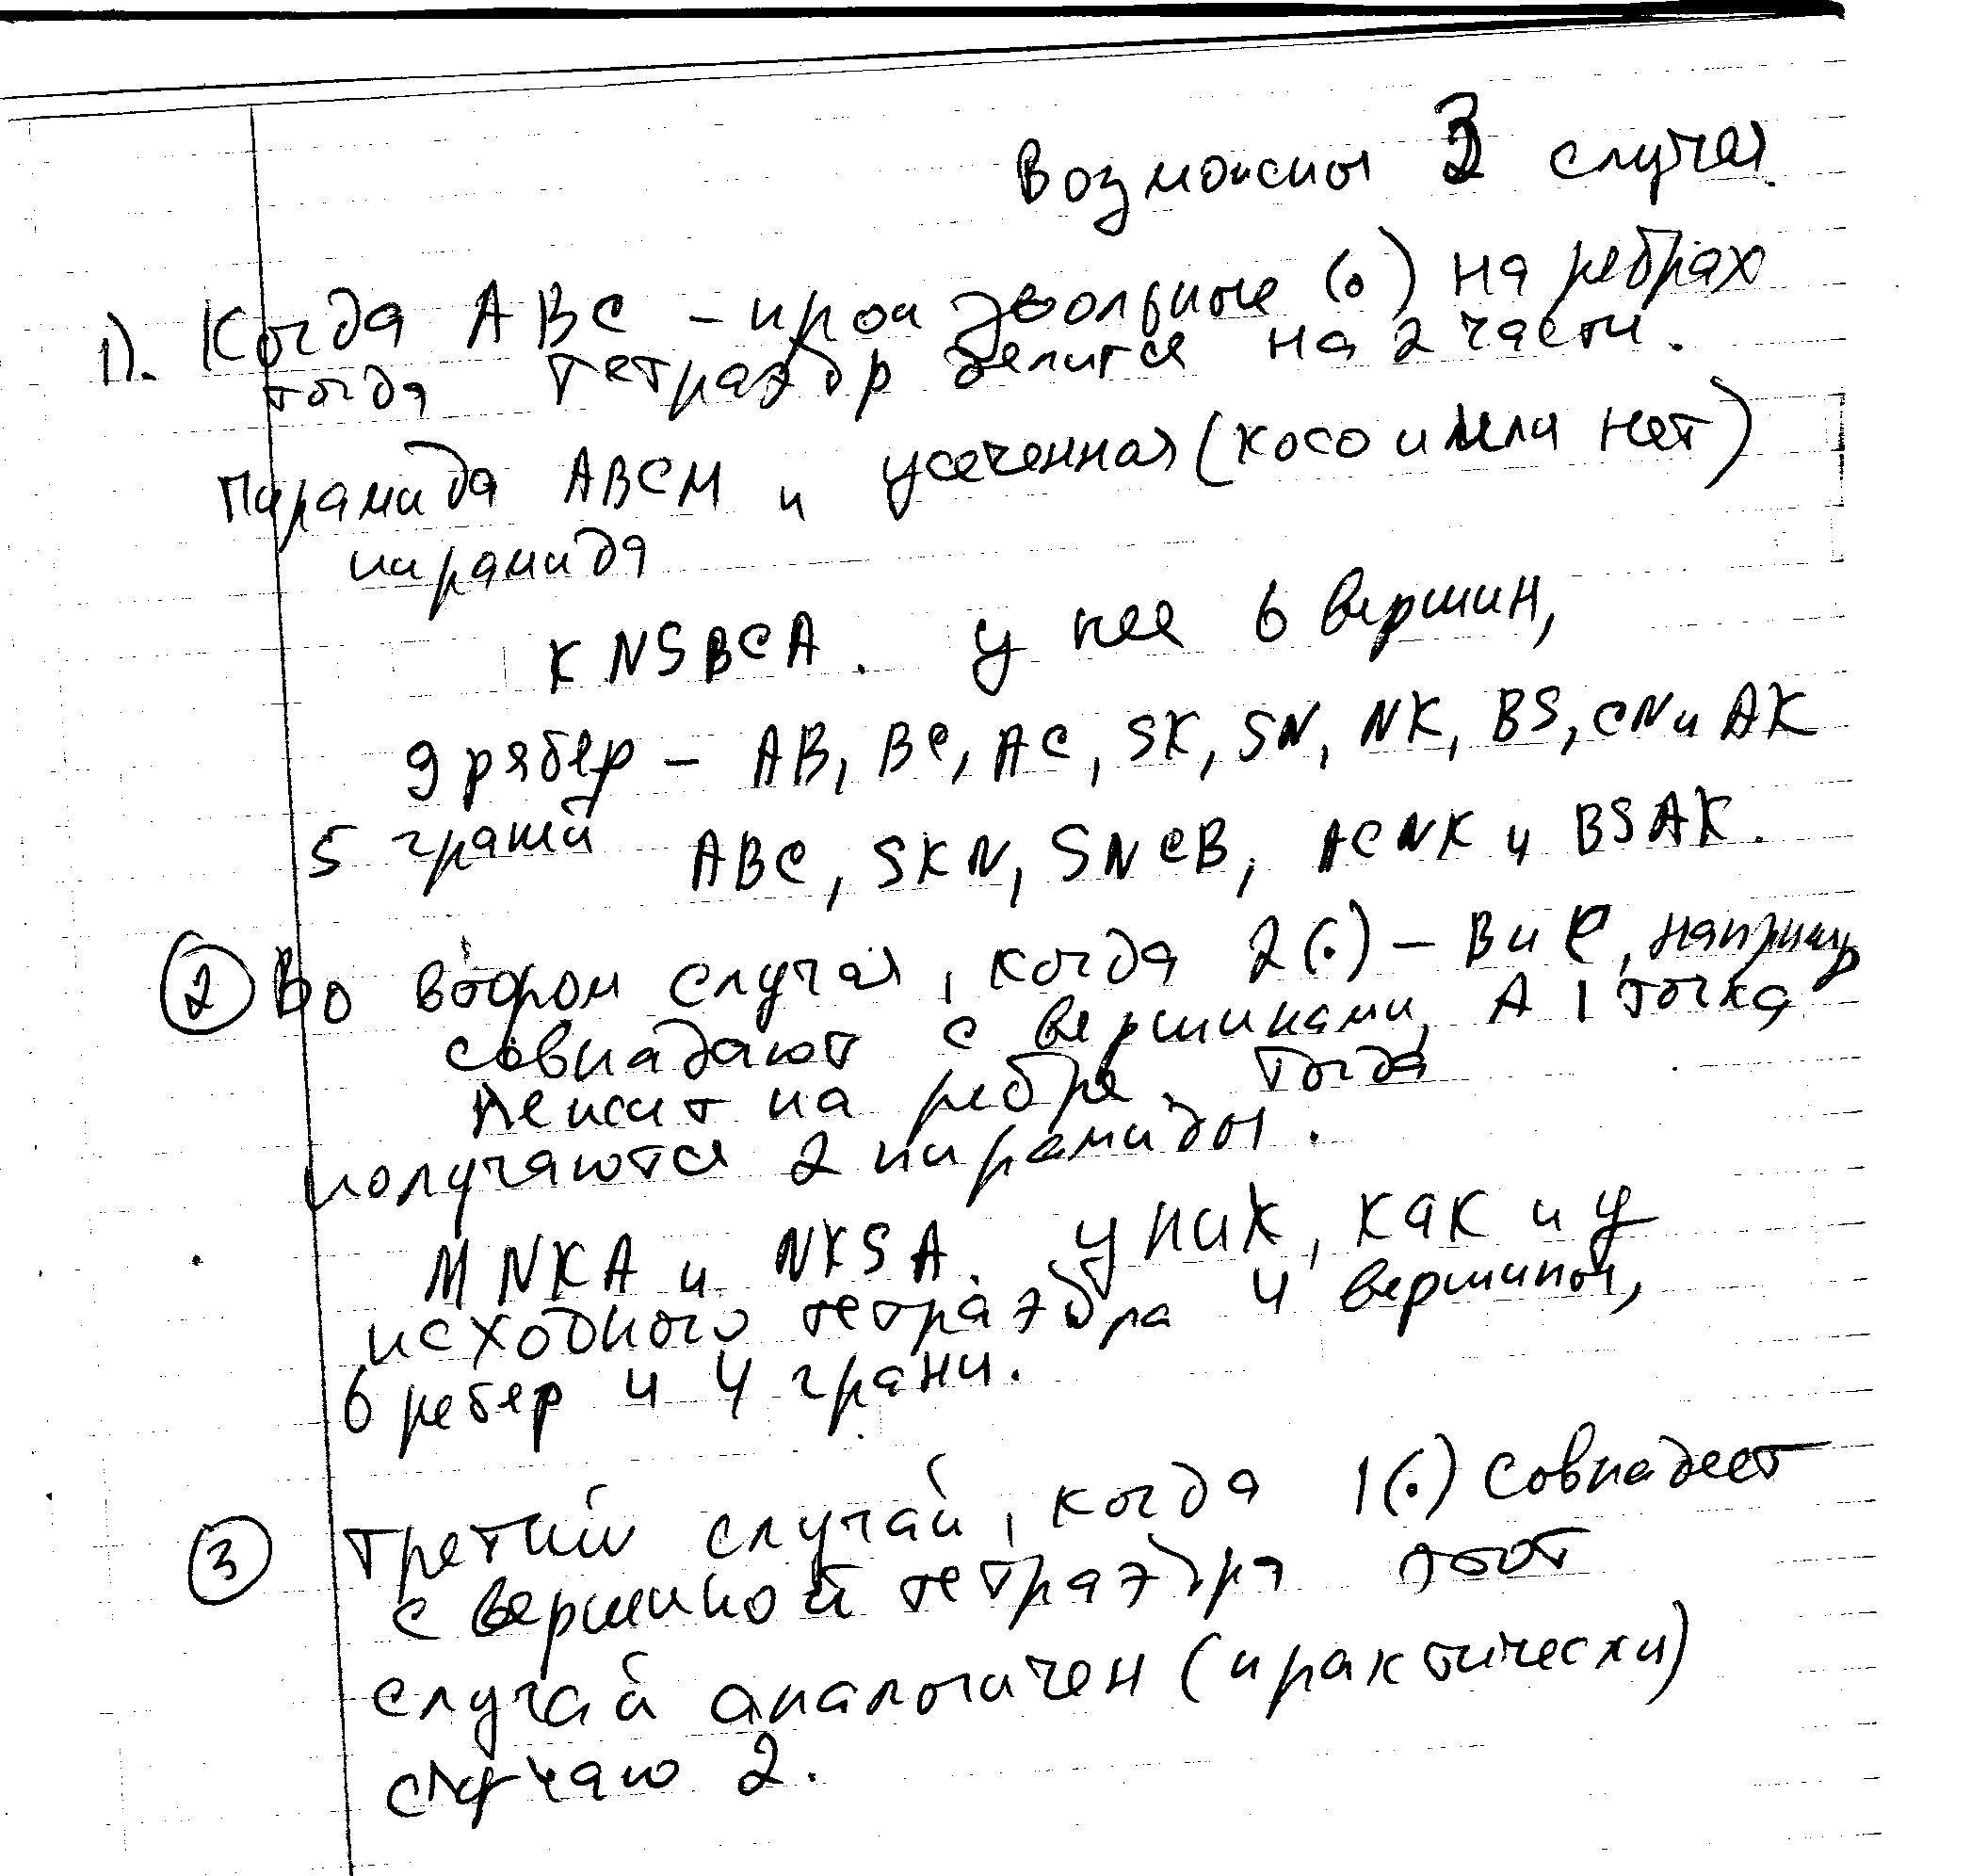 Возможны 3 случая.
1). Когда АВС – произвольные (•) на ребрах
тогда тетраэдр делится на 2 части.
Пирамида АВСМ и усеченная (косо или нет)
пирамида
KNSBCA. у нее 6 вершин,
9 рябер – АВ, ВС, АС, SK, SN, NK, BS, CN и АК
5 граней АВС, SKN, SNCB, ACNK и BSAK.
2 Во втором случая, когда 2(•) – В и С, например
совпадают с вершинами, А 1 точка
лежит на ребре. Тогда
получаются 2 пирамиды.
MNKA и NKSA. у них, как и у
исходного тетраэдра 4 вершины,
6 ребер и 4 грани.
3 третий случай, когда 1(•) совпадает
с вершиной тетраэдра этот
случай аналогичен (практически)
случаю 2.